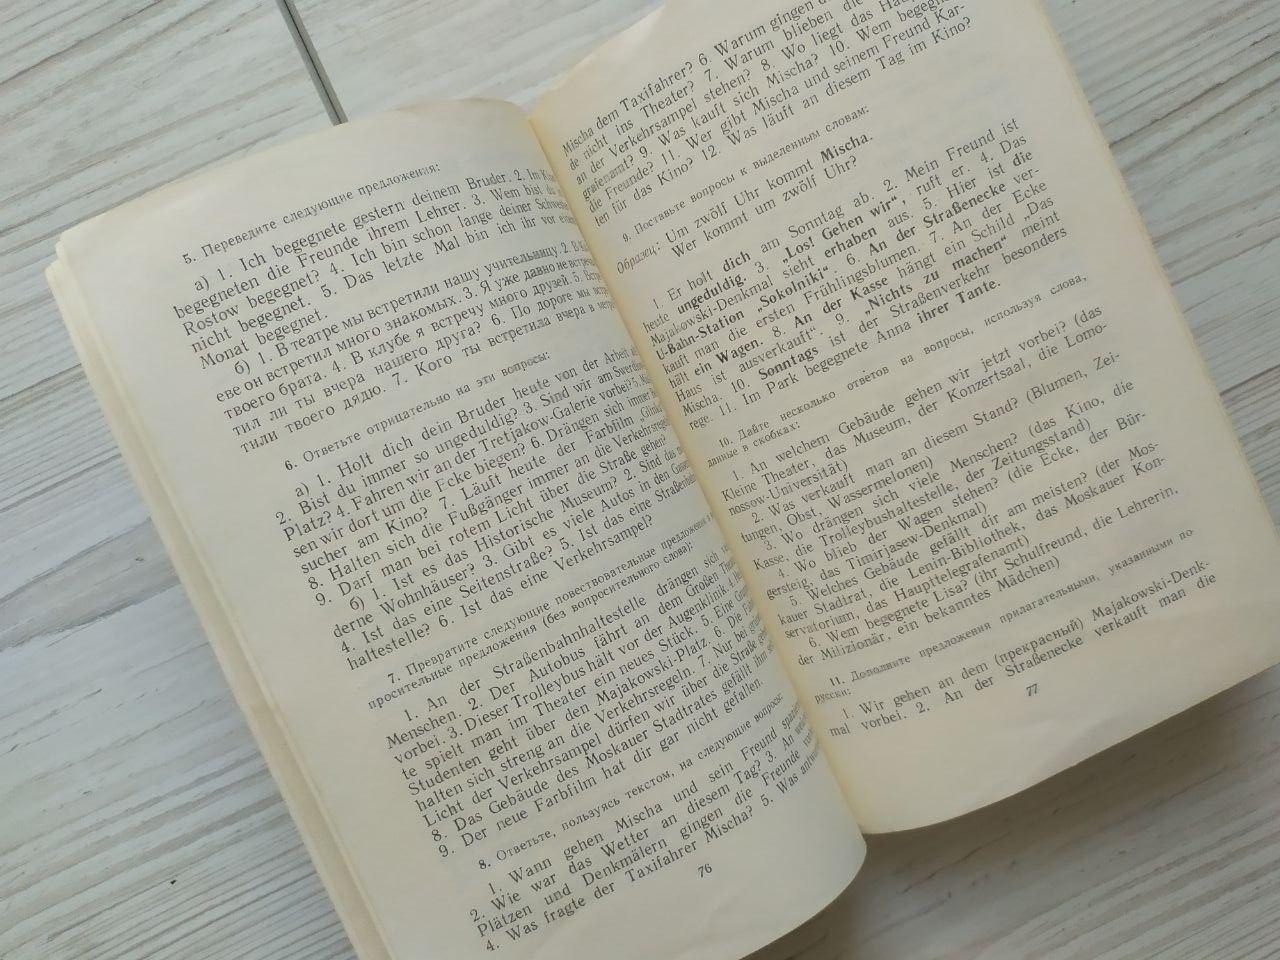 5. Переведите следующие предложения:
а) 1. Ich begegnete gestern deinem Bruder. 2. Im
begegneten die Freunde ihrem Lehrer. 3. Wem bist du
Rostow begegnet? 4. Ich bin schon lange deiner
nicht begegnet. 5. Das letzte Mal bin ich ihr vor
Monat begegnet.
б) 1. В театре мы встретили нашу учительницу. 2. В
еве он встретил много знакомых. 3. Я уже давно не
твоего брата. 4. В клубе я встречу много друзей. 5.
тил ли ты вчера нашего друга? 6. По дороге мы
тили твоего дядю. 7. Кого ты встретила вчера в
6. Ответьте отрицательно на эти вопросы:
а) 1. Holt dich dein Bruder heute von der Arbeit
2. Bist du immer so ungeduldig? 3. Sind wir am
Platz? 4. Fahren wir an der Tretjakow-Galerie vorbei? 5.
sen wir dort um die Ecke biegen? 6. Drängen sich immer
sucher am Kino? 7. Läuft heute der Farbfilm
8. Halten sich die Fußgänger immer an die
9. Darf man bei rotem Licht über die Straße gehen?
б) 1. Ist es das Historische Museum? 2. Sind das
derne Wohnhäuser? 3. Gibt es viele Autos in den
4. Ist das eine Seitenstraße? 5. Ist das eine
haltestelle? 6. Ist das eine Verkehrsampel?
7. Превратите следующие повествовательные предложения в
просительные предложения (без вопросительного слова):
1. An der Straßenbahnhaltestelle drängen sich
Menschen. 2. Der Autobus fährt an dem Großen
vorbei. 3. Dieser Trolleybus hält vor der Augenklinik. 4.
te spielt man im Theater ein neues Stück. 5. Eine
Studenten geht über den Majakowski-Platz. 6. Die
halten sich streng an die Verkehrsregeln. 7. Nur bei
Licht der Verkehrsampel dürfen wir über die Straße
8. Das Gebäude des Moskauer Stadtrates gefällt ihm
9. Der neue Farbfilm hat dir gar nicht gefallen.
8. Ответьте, пользуясь текстом, на следующие вопросы:
1. Wann gehen Mischa und sein Freund
2. Wie war das Wetter an diesem Tag? 3. An
Plätzen und Denkmälern gingen die Freunde
4. Was fragte der Taxifahrer Mischa? 5. Was
76
Mischa dem Taxifahrer? 6. Warum gingen
de nicht ins Theater? 7. Warum blieben die
an der Verkehrsampel stehen? 8. Wo liegt das
grafenamt? 9. Was kauft sich Mischa? 10. Wem
die Freunde? 11. Wer gibt Mischa und seinem Freund Kar-
ten für das Kino? 12. Was läuft an diesem Tag im Kino?
9. Поставьте вопросы к выделенным словам:
Образец: Um zwölf Uhr kommt Mischa.
Wer kommt um zwölf Uhr?
1. Er holt dich am Sonntag ab. 2. Mein Freund ist
heute ungeduldig. 3. „Los! Gehen wir“, ruft er. 4. Das
Majakowski-Denkmal sieht erhaben aus. 5. Hier ist die
U-Bahn-Station „Sokolniki“. 6. An der Straßenecke ver-
kauft man die ersten Frühlingsblumen. 7. An der Ecke
hält ein Wagen. 8. An der Kasse hängt ein Schild „Das
Haus ist ausverkauft“. 9. „Nichts zu machen“ meint
Mischa. 10. Sonntags ist der Straßenverkehr besonders
rege. 11. Im Park begegnete Anna ihrer Tante.
10. Дайте несколько ответов на вопросы, используя слова,
данные в скобках:
1. An welchem Gebäude gehen wir jetzt vorbei? (das
Kleine Theater, das Museum, der Konzertsaal, die Lomo-
nossow-Universität)
2. Was verkauft man an diesem Stand? (Blumen, Zei-
tungen, Obst, Wassermelonen)
3. Wo drängen sich viele Menschen? (das Kino, die
Kasse, die Trolleybushaltestelle, der Zeitungsstand)
4. Wo blieb der Wagen stehen? (die Ecke, der Bür-
gersteig, das Timirjasew-Denkmal)
5. Welches Gebäude gefällt dir am meisten? (der Mos-
kauer Stadtrat, die Lenin-Bibliothek, das Moskauer Kon-
servatorium, das Haupttelegrafenamt)
6. Wem begegnete Lisa? (ihr Schulfreund, die Lehrerin,
der Milizionär, ein bekanntes Mädchen)
11. Дополните предложения прилагательными, указанными по-
русски:
1. Wir gehen an dem (прекрасный) Majakowski-Denk-
mal vorbei. 2. An der Straßenecke verkauft man die
77